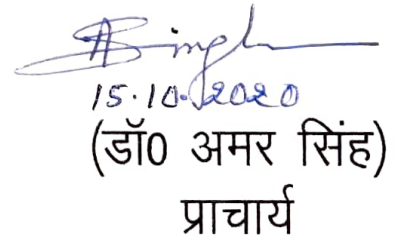 ASingh
15.10.2020
(डॉ0 अमर सिंह)
प्राचार्य